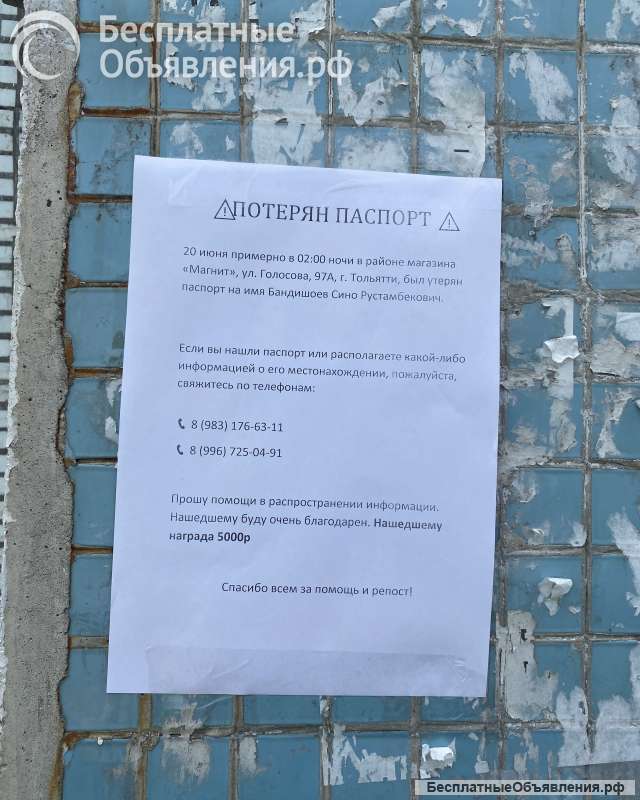 Бесплатные
Объявления.рф
⚠ПОТЕРЯН ПАСПОРТ ⚠
20 июня примерно в 02:00 ночи в районе магазина
«Магнит», ул. Голосова, 97А, г. Тольятти, был утерян
паспорт на имя Бандишоев Сино Рустамбекович.
Если вы нашли паспорт или располагаете какой-либо
информацией о его местонахождении, пожалуйста,
свяжитесь по телефонам:
8 (983) 176-63-11
8 (996) 725-04-91
Прошу помощи в распространении информации.
Нашедшему буду очень благодарен. Нашедшему
награда 5000р
Спасибо всем за помощь и репост!
БесплатныеОбъявления.рф